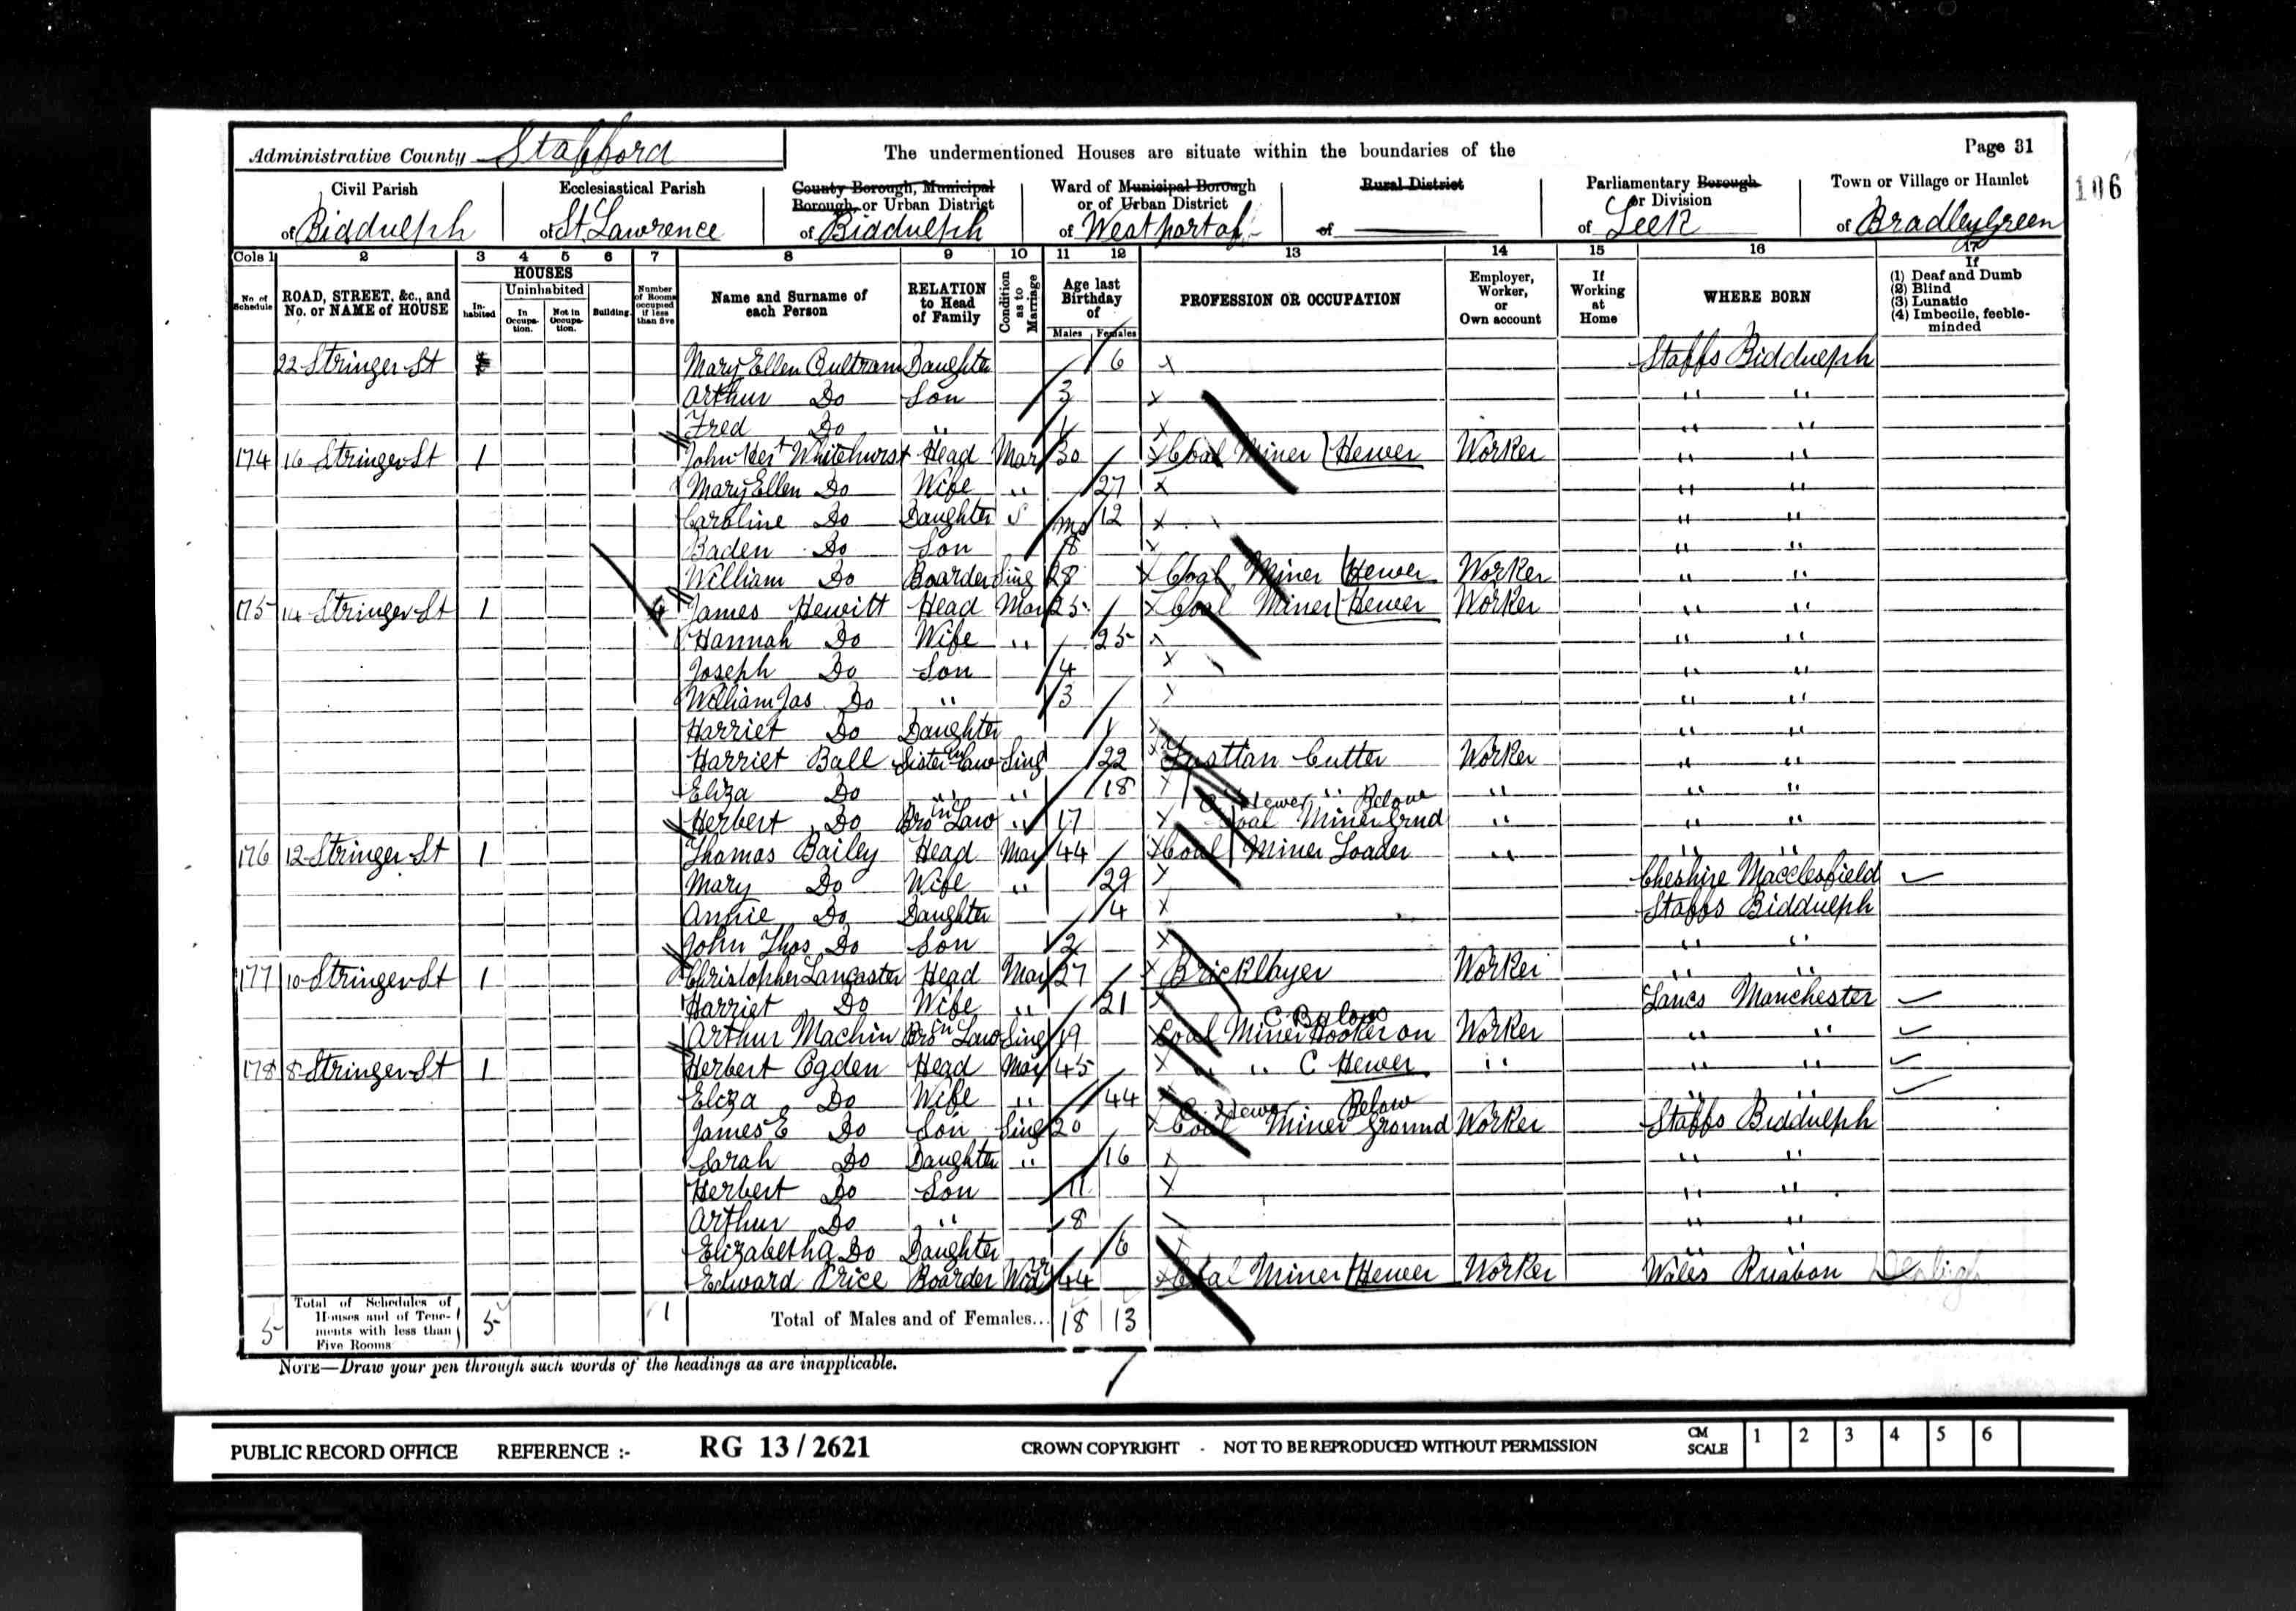 Administrative County Stafford
The undermentioned Houses are situate within the boundaries of the
Page 31
106
Civil Parish of Biddulph
Ecclesiastical Parish of St. Lawrence
County Borough, Municipal Borough, or Urban District of Biddulph
Ward of Municipal Borough or of Urban District of
Rural District of
Parliamentary Borough or Division of Leek
Town or Village or Hamlet of Bradley Green
Cols 1 2 3 4 5 6 7 8 9 10 11 12 13 14 15 16 17
No. of Schedule
ROAD, STREET, &c., and No. or NAME of HOUSE
HOUSES
In-habited
Uninhabited
In Occupa-tion.
Not in Occupa-tion.
Building.
Number of Rooms occupied if less than five
Name and Surname of each Person
RELATION to Head of Family
Condition as to Marriage
Age last Birthday of
Males Females
PROFESSION OR OCCUPATION
Employer, Worker, or Own account
If Working at Home
WHERE BORN
If
(1) Deaf and Dumb
(2) Blind
(3) Lunatic
(4) Imbecile, feeble-minded
22 Stringer St Mary Ellen Daughter 6 X Staffs Biddulph
Arthur Do Son 3 X " "
Fred Do " 1 X " "
174 16 Stringer St 1 John Whitehurst Head Mar 30 X Coal Miner Hewer Worker " "
Mary Ellen Do Wife " 27 X " "
Caroline Do Daughter S 12 X " "
Baden Do Son 8 mo X " "
William Do Boarder Sing 28 X Coal Miner Hewer Worker " "
175 14 Stringer St 1 4 James Hewitt Head Mar 25 X Coal Miner Hewer Worker " "
Hannah Do Wife " 25 X " "
Joseph Do Son 4 X " "
William Jas Do " 3 X " "
Harriet Do Daughter 1 X " "
Harriet Ball Sister in Law Sing 22 X Fusttian Cutter Worker " "
Eliza Do " " 18 X " " " " "
Herbert Do Bro in Law " 17 X C Hewer Below Coal Miner Grnd " " "
176 12 Stringer St 1 Thomas Bailey Head Mar 44 X Coal Miner Loader " " "
Mary Do Wife " 29 X Cheshire Macclesfield
Annie Do Daughter 4 X Staffs Biddulph
John Thos Do Son 2 X " "
177 10 Stringer St 1 Christopher Lancaster Head Mar 27 X Bricklayer Worker " "
Harriet Do Wife " 21 X Lancs Manchester
Arthur Machin Bro in Law Sing 19 X Coal Miner Hooker on C Below Worker " "
178 8 Stringer St 1 Herbert Ogden Head Mar 45 X " " C Hewer " " "
Eliza Do Wife " 44 X " "
James E Do Son Sing 20 X C Hewer Below Coal Miner Ground Worker Staffs Biddulph
Sarah Do Daughter " 16 X " "
Herbert Do Son 11 X " "
Arthur Do " 8 " "
Elizabeth A Do Daughter 6 X " "
Edward Price Boarder 44 X Coal Miner Hewer Worker Wales Ruabon Denbigh
5 Total of Schedules of Houses and of Tene-ments with less than Five Rooms 5 1 Total of Males and of Females... 18 13
NOTE—Draw your pen through such words of the headings as are inapplicable.
PUBLIC RECORD OFFICE REFERENCE :- RG 13 / 2621 CROWN COPYRIGHT - NOT TO BE REPRODUCED WITHOUT PERMISSION CM SCALE 1 2 3 4 5 6